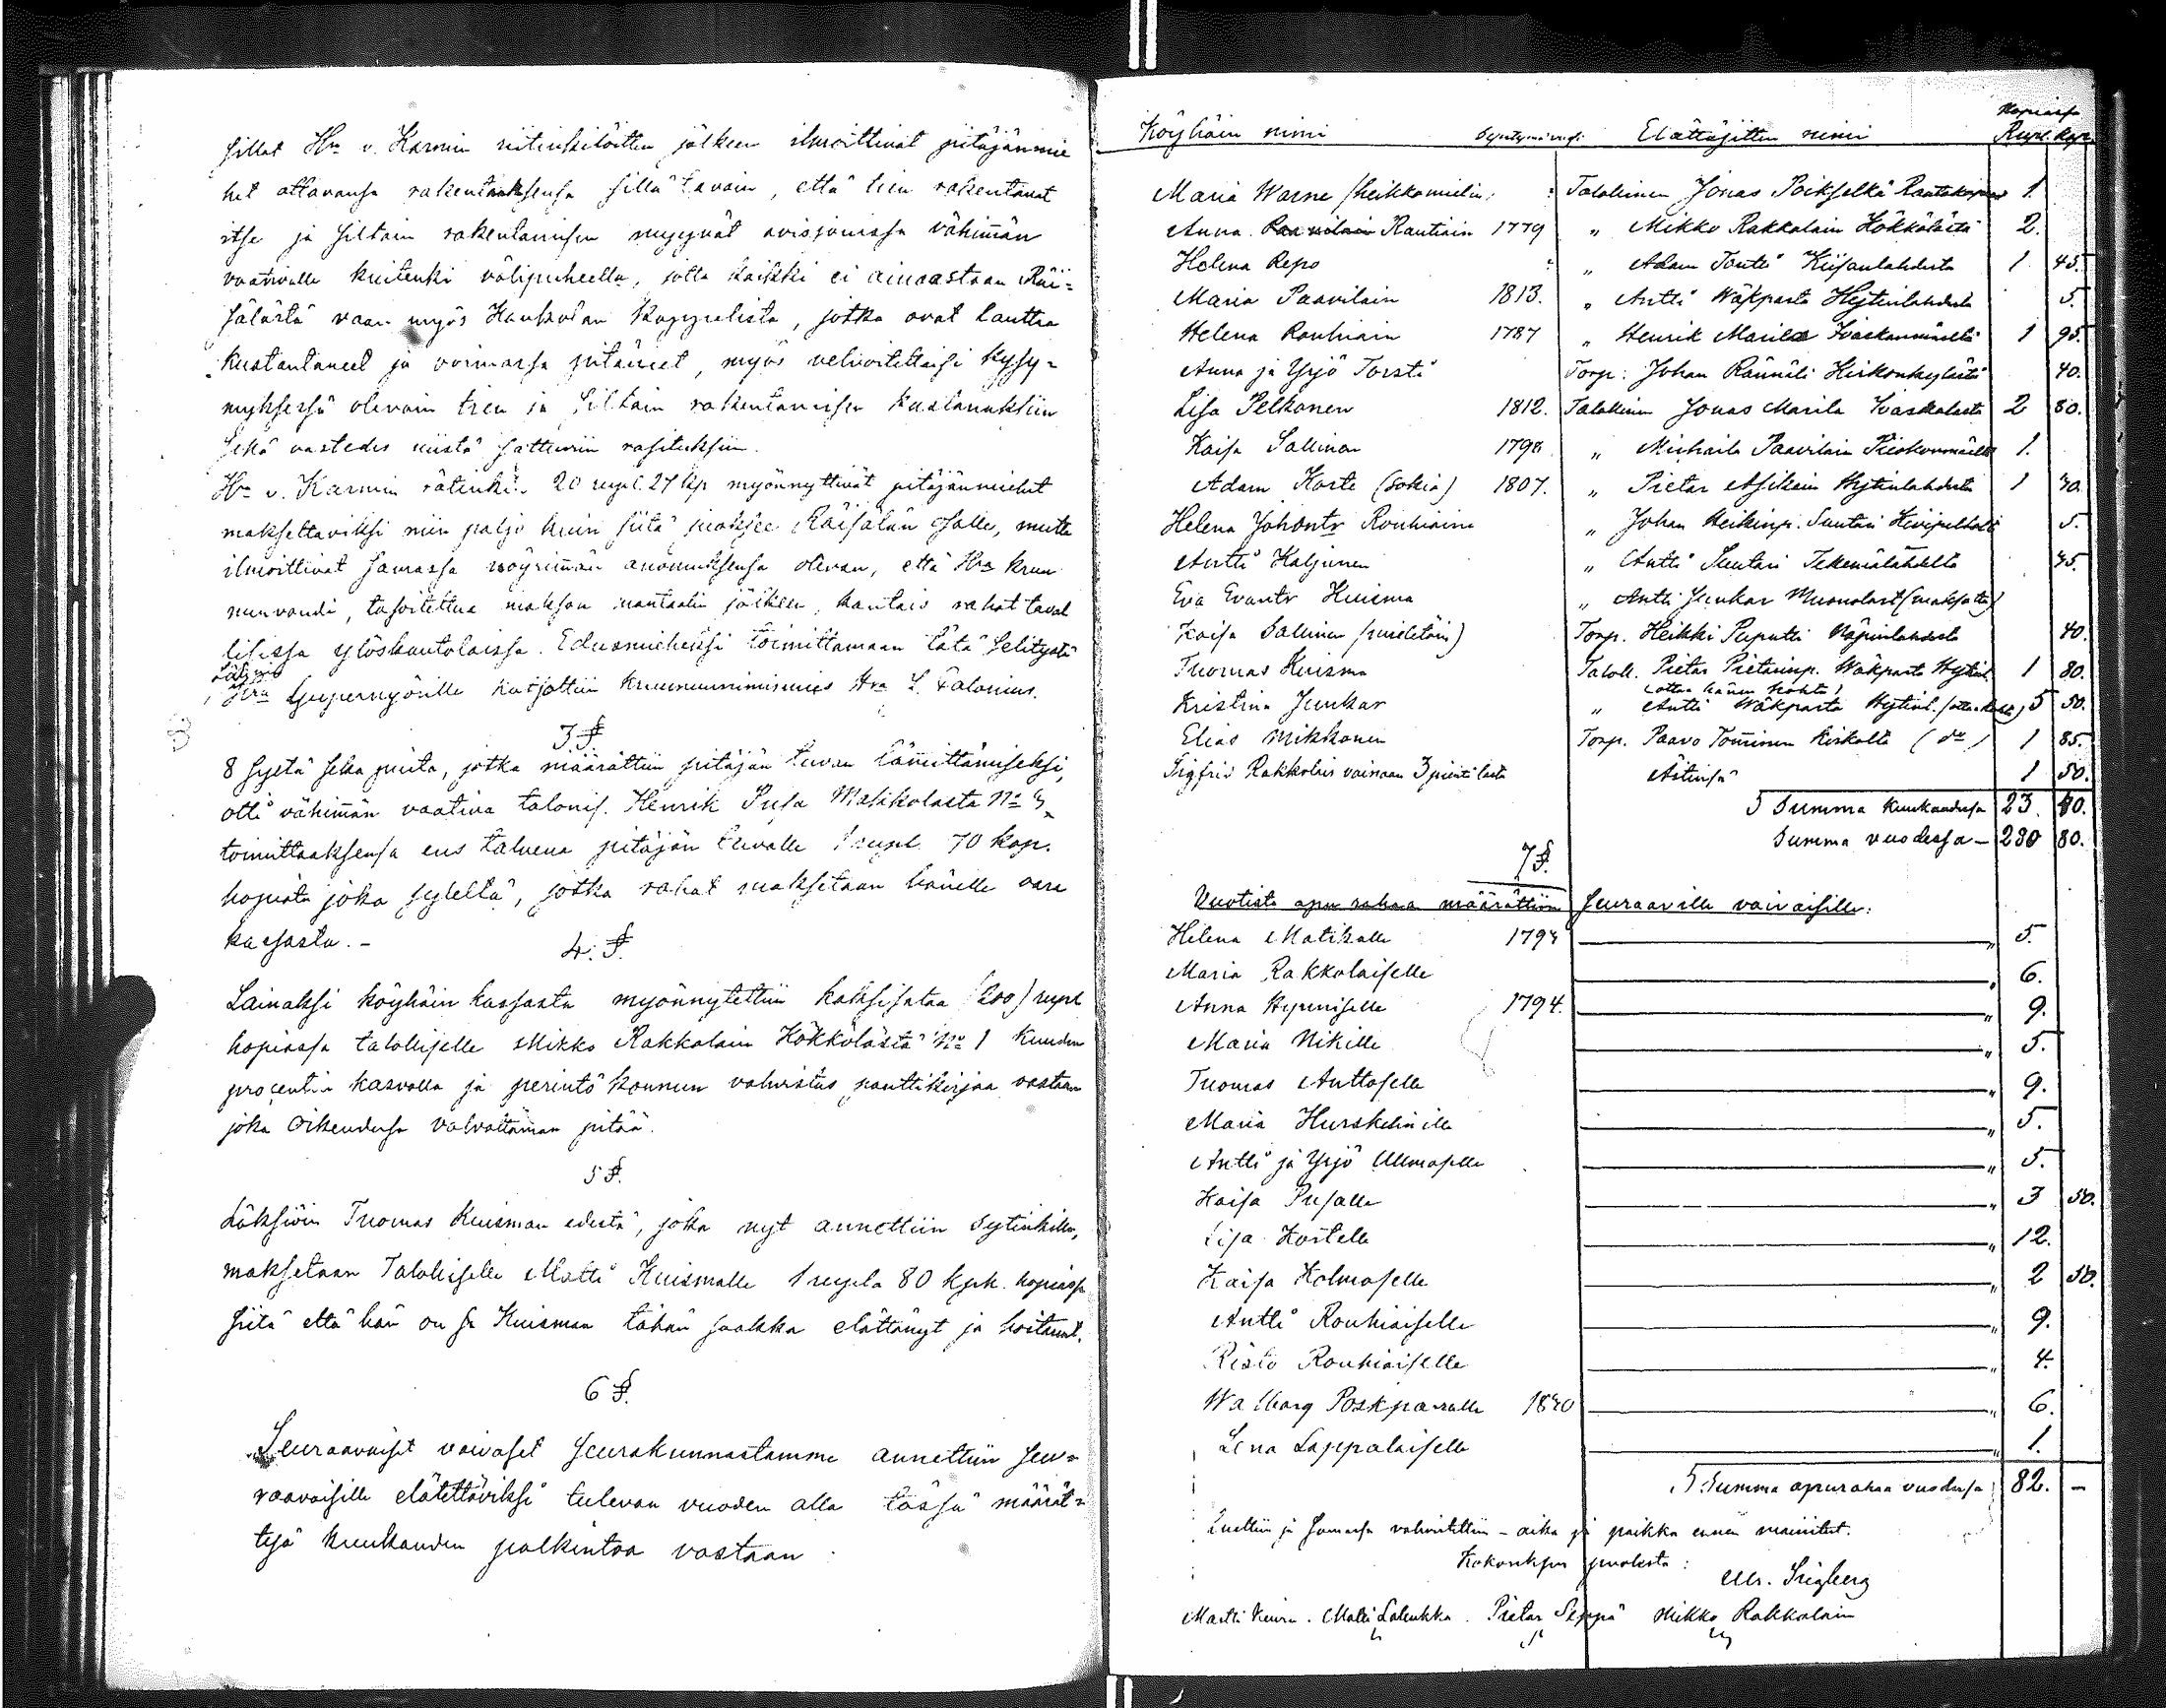 sillat Hra v. Karmin niitinkilöitten jälkeen ilmoittivat pitäjänmie
het ottavansa rakentaaksensa sillä tavoin, että tien rakentavat
itse ja siltain rakentamisen myyvät avisjonissa vähimmän
vaativalle kuitenki välipuheella, jotta kaikki ei ainoastaan Räi=
sälästä vaan myös Kaukolan kappelista, jotka ovat lauttaa
kustantaneet ja voimassa pitäneet, myös velvoitettaisi kysy=
myksessä olevain tien ja siltain rakentamisen kustannuksiin
sekä vastedes niistä sattuviin rasituksiin.
Hra v. Karmin rätinki 20 rupl. 27 kp myönnyttivät pitäjänmiehet
maksettaviksi niin paljo kuin siitä juoksee Räisälän osalle, mutta
ilmoittivat samassa nöyrimmän anomuksensa olevan, että Hra kruu
nunvouti, tasoitettua maksun mantaalin jälkeen, kantais rahat taval
lisissa ylöskantolaissa. Edusmieheksi toimittamaan tätä selitystä
Läänin
Hra Guvernyörille kutsottiin kruununnimismies Hra L. Falonius.
3 §
8 syltä seka puita, jotka määrättiin pitäjän tuvan lämmittämiseksi,
otti vähimmän vaativa talonis. Henrik Pusa Makkolasta No 3
toimittaaksensa ens talvena pitäjän tuvalle 1 rupl. 70 kop.
hopiata joka syleltä, jotka rahat maksetaan hänelle vara
kassasta. -
4. §.
Lainaksi köyhäin kassasta myönnytettiin kaksisataa (200) rupl
hopiassa talolliselle Mikko Rakkolain Hökkölästä No 1 kuuden
procentin kasvolla ja perintö konnun vahvistus panttikirjaa vastaan
joka Oikeudessa valvottaman pitää.
5 §.
Läksiöin Tuomas Kuisman edestä, joka nyt annettiin Sytinkille,
maksetaan Talolliselle Matti Kuismalle 1 rupla 80 kpk. hopiassa
siitä että hän on se Kuisman tähän saakka elättänyt ja hoitanut.
6 §.
Seuraavaiset vaivaset seurakunnastamme annettiin seu=
raavaisille elätettäviksi tulevan vuoden alla tässä määrät=
tyä kuukauden palkintoa vastaan:
Köyhäin nimi Syntymävuosi Elättäjitten nimi Hopiassa Rupl. kop.
Maria Warne (heikkomielin. Talollinen Jonas Poikselkä 1
Anna Raavilain Rautiain 1779 " Mikko Rakkolain Hökkölästä 2.
Helena Repo " Adam Tontti Kiisanlahdesta 1 45.
Maria Paavilain 1813. " Antti Wäkparta Hytinlahdesta 5.
Helena Rouhiain 1787 " Henrik Marila Ivaskanmäeltä 1 95.
Anna ja Yrjö Torsti Torp: Johan Rännäli Kirkonkylästä 40.
Lisa Pelkonen 1812. Talollinen Jonas Marila Ivaskalasta 2 80.
Kaisa Sallinen 1798 " Michaila Paavilain 1.
Adam Korte (sokia) 1807. " Pietar Asikain Hytinlahdesta 1 70
Helena Johantr Rouhiain " Johan Heikinp. Suutari 5.
Antti Kaljunen " Antti Suutari Tekemälahdelta 45.
Eva Evantr Kuisma " Antti Junkar (maksotta)
Kaisa Sallinen (mieletöin) Torp. Heikki Puputti Näpinlahdesta 40.
Tuomas Kuisma Taloll. Pietar Pietarinp. Wäkparta Hytinl. 1 80.
(ottaa hänen kohta)
Kristina Junkar " Antti Wäkparta Hytinl. 5 50.
Elias Mikkonen Torp. Paavo Tomminen (do) 1 85.
Sigfrid Rakkolais vainaan 3 pientä lasta Äitinsä 1 50.
S Summa kuukaudessa 23. 40.
Summa vuodessa - 280 80.
7 §.
Vuotista apu rahaa määrättiin seuraaville vaivaisille:
Helena Matikalle 1798 " 5.
Maria Rakkolaiselle " 6.
Anna Hyyniselle 1794. " 9.
Maria Nikille " 5.
Tuomas Anttoselle " 9.
Maria Hurskelinille " 5.
Antti ja Yrjö Ullmaselle " 5.
Kaisa Pusalle " 3 50.
Lisa Kortelle " 12.
Kaisa Kolmoselle " 2 50.
Antti Rouhiaiselle " 9.
Risto Rouhiaiselle " 4.
Walborg Poskparralle 1840 " 6.
Lena Lappalaiselle " 1.
S Summa apurahaa vuodessa 82. -
Luettiin ja samassa vahvistettiin - aika ja paikka ennen mainitut.
Kokouksen puolesta:
Mr. Sirgberg
Martti Keura. Matti Lalukka. Pietar Seppä Mikko Rakkolain